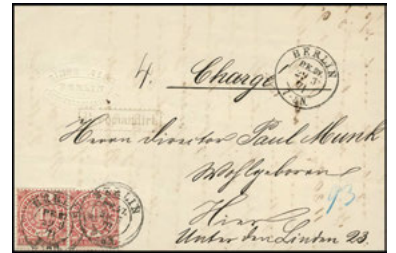 4. Chargé
BERLIN
Herrn Director Paul Munk
Wohlgeboren
Hier
Unter den Linden 23.
93
BERLIN
BERLIN